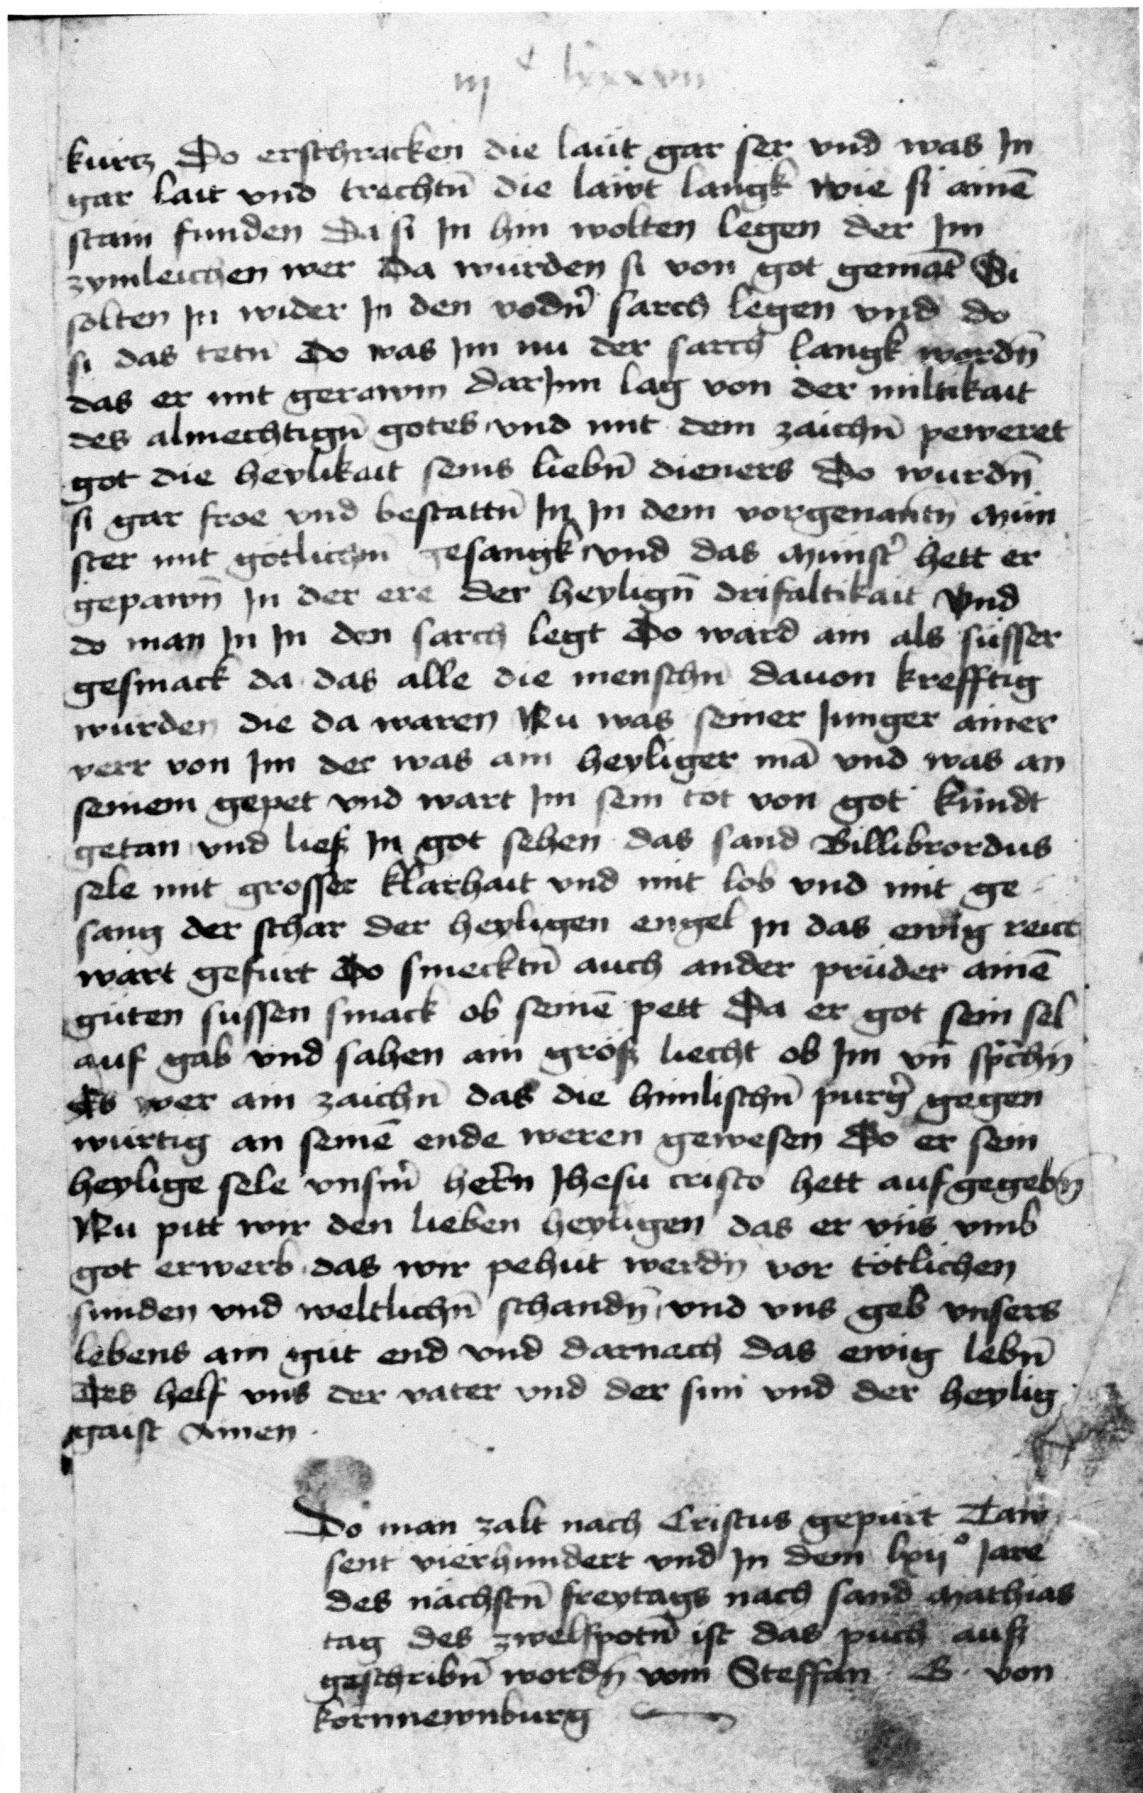 iij c lxxxvii
kurcz Do erschracken die laüt gar ser vnd was In
gar lait vnd trechtn̄ die lawt langk wie si ainē
stain funden Da si In hin wolten legen der Im
zymleichen wer Da wurden si von got gemāt Si
solten In wider In den vodn̄ sarch legen vnd do
si das tetn̄ Do was Im nu der sarch langk wordn̄
das er mit gerawm darInn lag von der miltikait
des almechtign̄ gotes vnd mit dem zaichn̄ peweret
got die heylikait seins liebn̄ dieners Do wurdn̄
si gar froe vnd bestattn̄ In In dem vorgenantn̄ Mün
ster mit götlichn̄ gesangk vnd das Münst̉ hett er
gepawn̄ In der ere der heylign̄ drifaltikait Vnd
do man In In den sarch legt Do ward ain als süsser
gesmack da das alle die menschn̄ dauon krefftig
wurden die da waren Nu was seiner Junger ainer
verr von Im der was ain heyliger mā vnd was an
seinem gepet vnd wart Im sein tot von got kundt
getan vnd liesz In got sehen das sand Billibrordus
sele mit grosser klarhait vnd mit lob vnd mit ge
sang der schar der heyligen engel In das ewig reich
wart gefürt Do smecktn̄ auch ander prüder ainē
güten süssen smack ob seinē pett Da er got sein sel
auf gab vnd sahen ain grosz liecht ob Im vn̄ sp̄chn̄
Es wer ain zaichn̄ das die himlischn̄ purg̉ gegen
würtig an seinē ende weren gewesen Do er sein
heylige sele vnsm̉ hern̄ Jhesu cristo hett auf gegebn̄
Nu pitt wir den lieben heyligen das er vns vmb
got erwerb das wir pehüt werdn̄ vor tötlichen
sunden vnd weltlichn̄ schandn̄ vnd vns geb vnsers
lebens ain güt end vnd darnach das ewig lebn̄
Des helf vns der vater vnd der sun vnd der heylig
gaist Amen
Do man zalt nach Cristus gepürt Taw
sent vierhundert vnd In dem lxii° Jare
des nächstn̄ freytags nach sand Mathias
tag des zwelfpotn̄ ist das püch ausz
geschribn̄ wordn̄ vom Steffan · B · von
kornnewnburg